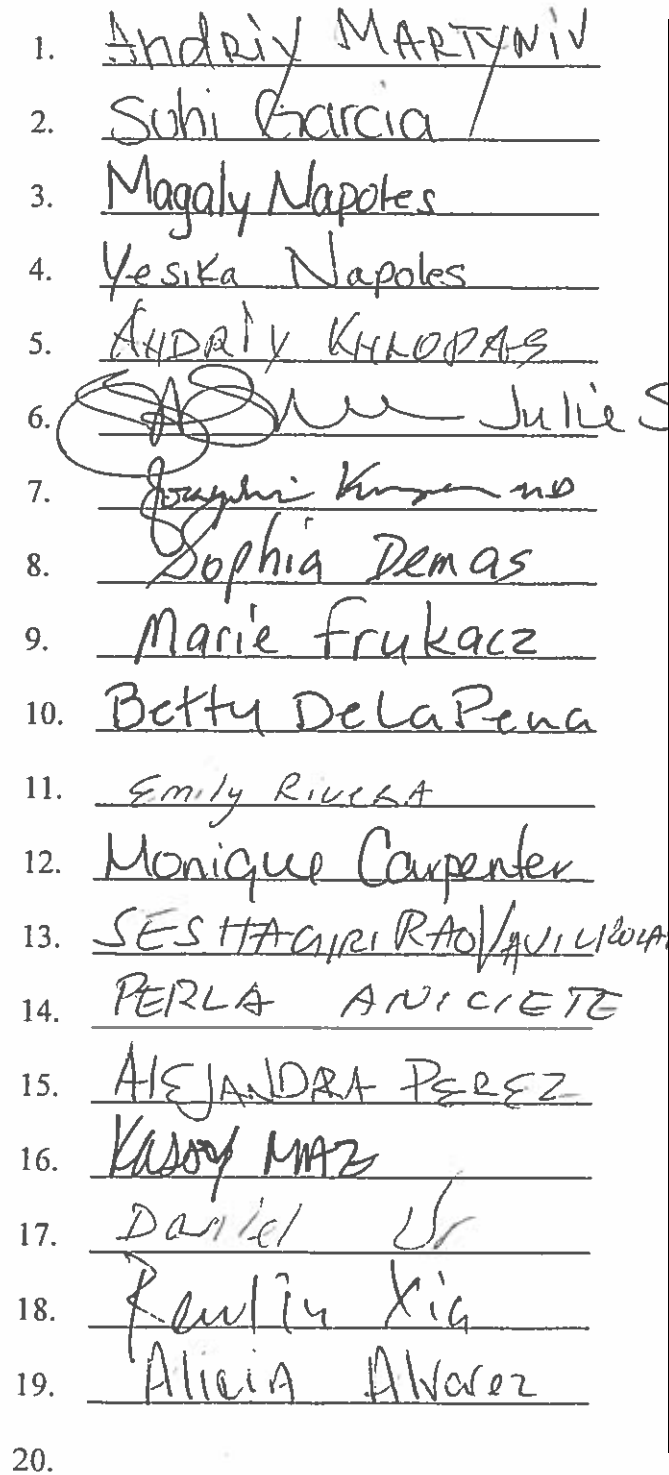 1. Andriy MARTYNIV
2. Suhi Garcia
3. Magaly Napoles
4. Yesika Napoles
5. ANDRIY KHLOPAS
6. Julie S
7.
8. Sophia Demas
9. Marie Frykacz
10. Betty DeLaPena
11. Emily RIVERA
12. Monique Carpenter
13. SESHAGIRI RAO
14. PERLA ANICIETE
15. AlEJANDRA PEREZ
16.
17. Daniel
18. Xia
19. AliciA Alvarez
20.